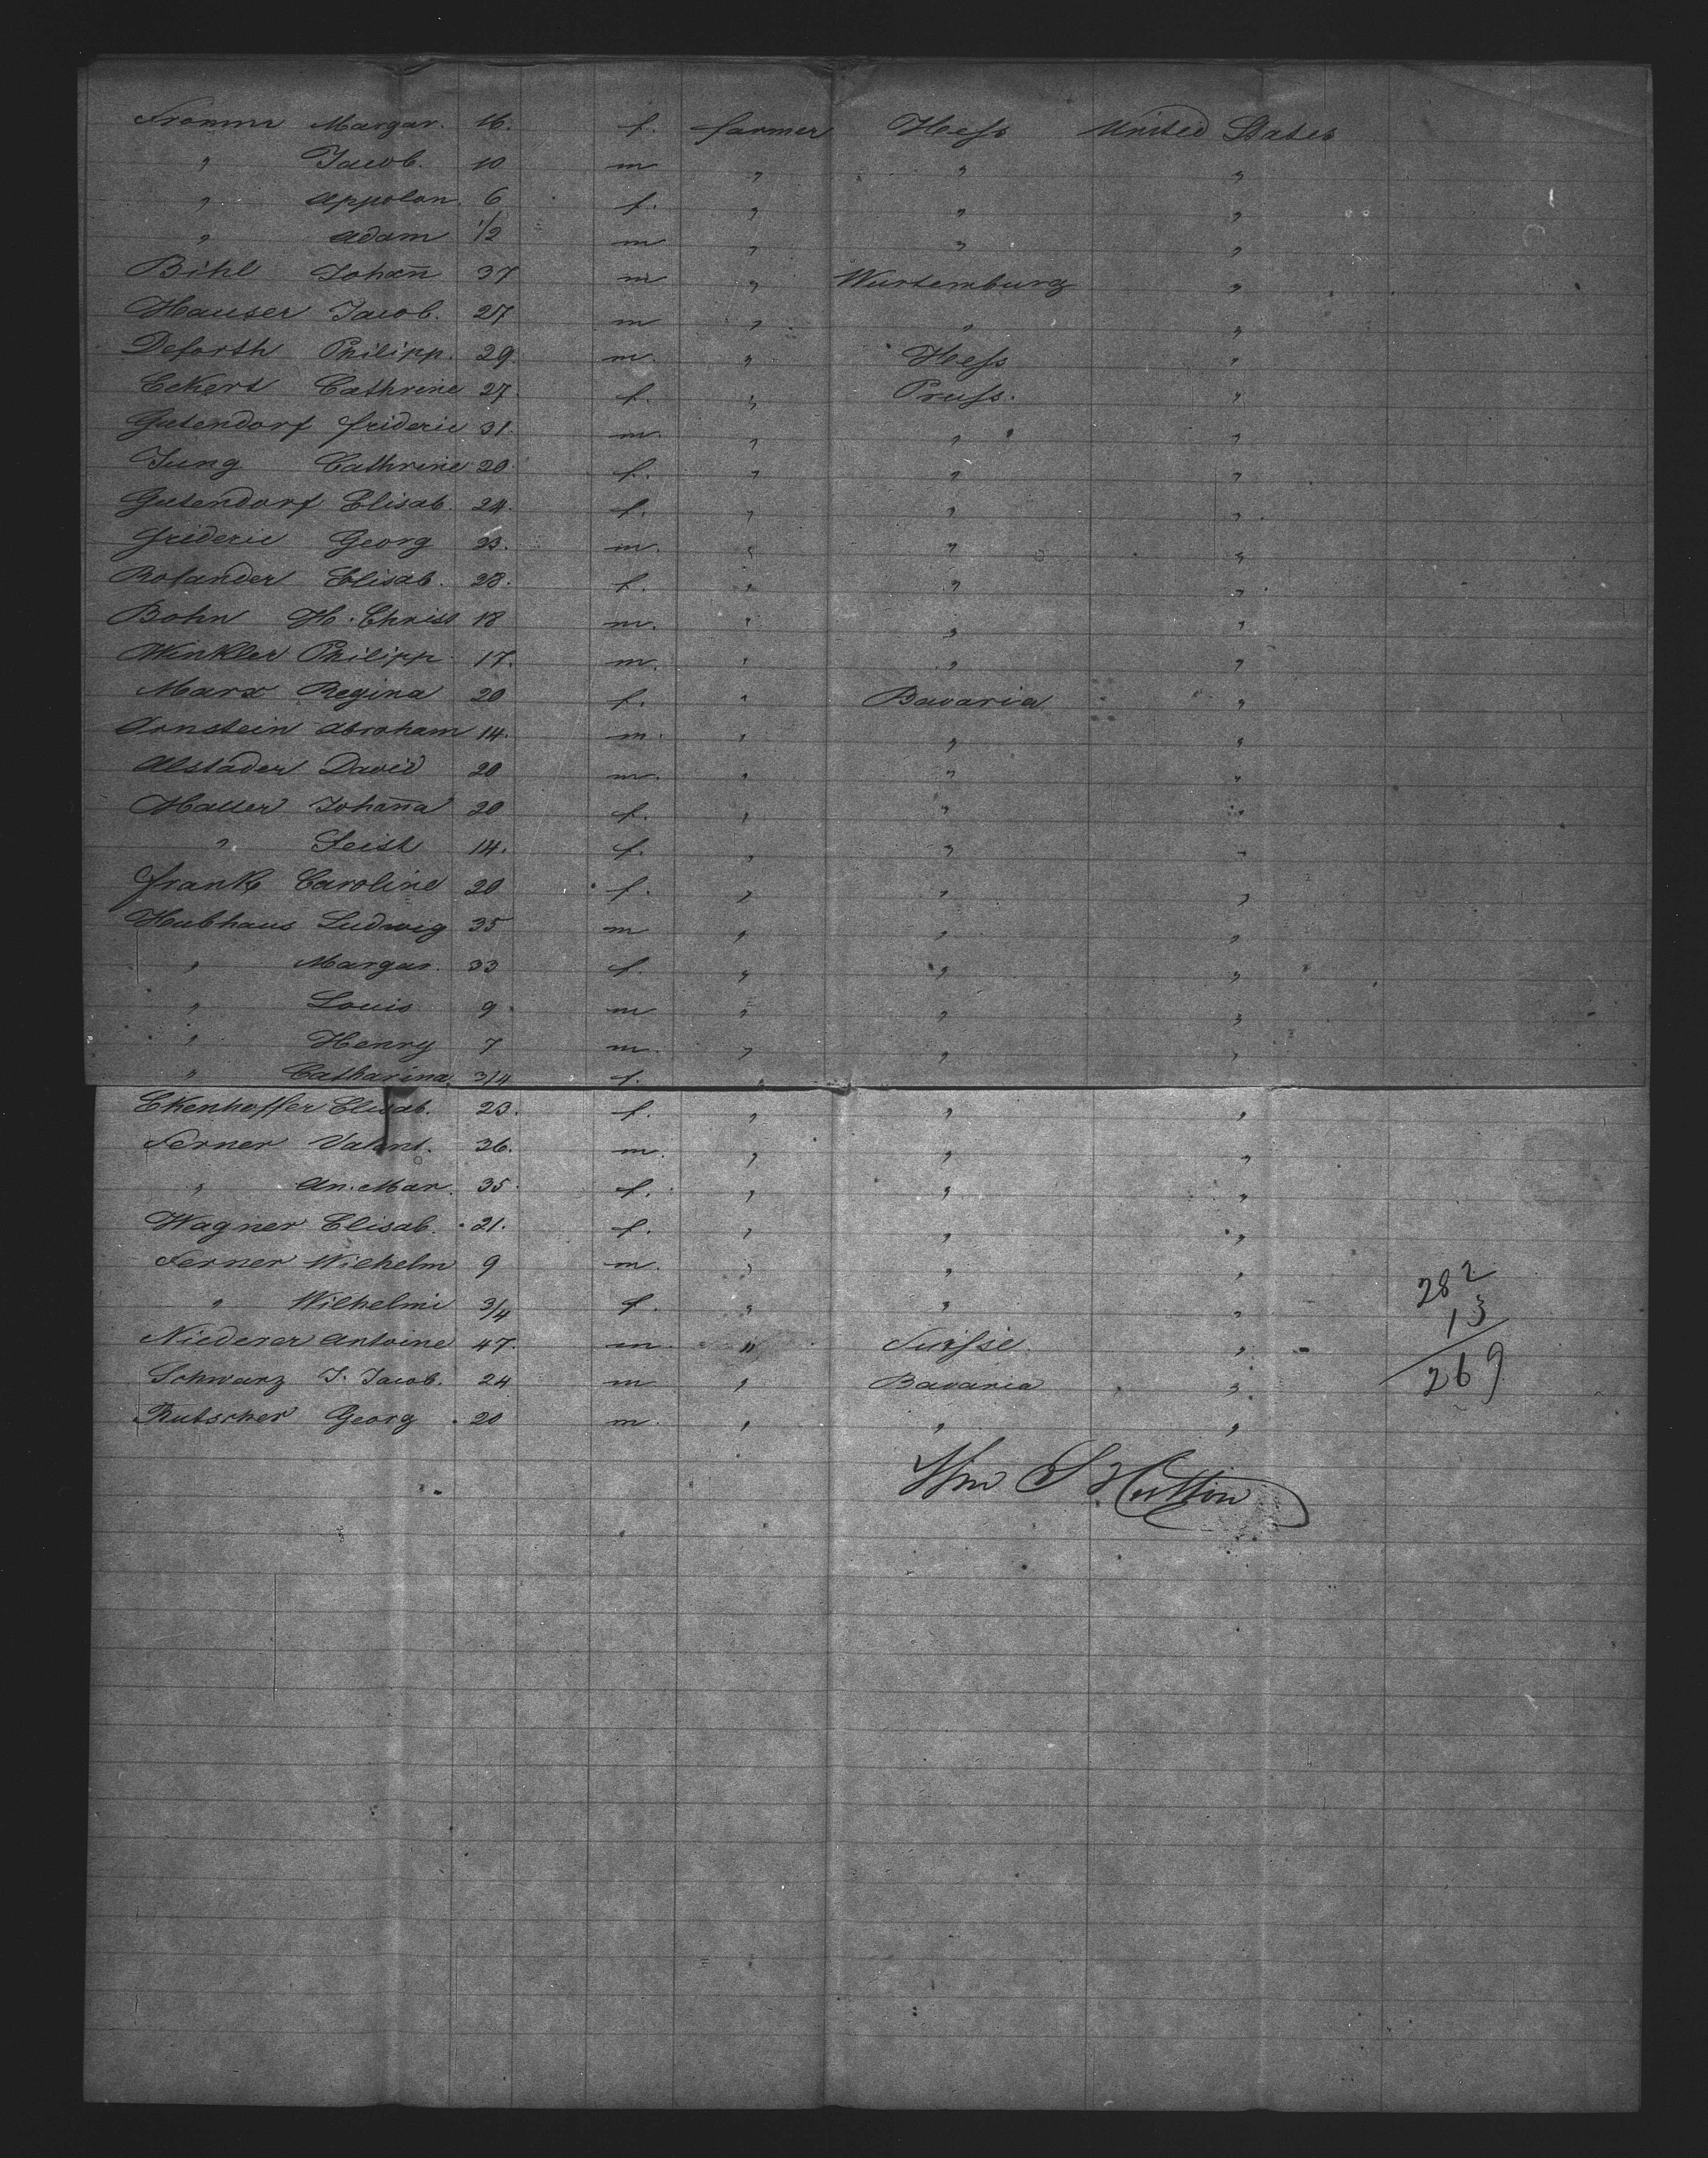 Fromm Margar. 16. f. farmer Hess United States
" Jacob. 10 m " " "
" Appolon. 6 f. " " "
" Adam 1/2 m " " "
Bihl Johan̄ 37 m " Wurtemburg "
Hauser Jacob. 27 m " " "
Deforth Philipp. 29. m. " Hess "
Eckert Cathrine 27. f. " Pruss. "
Gutendorf frideric 31. m. " " "
Jung Cathrine 20. f. " " "
Gutendorf Elisab. 24. f. " " "
frideric Georg 23. m. " " "
Rofander Elisab. 28. f. " " "
Bohn H. Christ 18 m. " " "
Winkler Philipp 17. m. " " "
Marx Regina 20 f. " Bavaria "
Arnstein Abraham 14. m. " " "
Alstader David 20 m. " " "
Haller Johan̄a 20 f. " " "
" Feist 14. f. " " "
frank Caroline 20 f. " " "
Hubhaus Ludwig 35 m " " "
" Margar. 33 f. " " "
" Louis 9 m " " "
" Henry 7 m. " " "
" Catharina 3/4 f. "
Ekenhoffer Elisab. 23. f. " " "
Ferner Valent. 36. m. " " "
" An. Mar. 35. f. " " "
Wagner Elisab. 21. f. " " "
Ferner Wilhelm 9 m. " " "
" Wilhelmi 3/4 f. " " "
282
13
269
Niederer Antoine 47. m. " Suisse. "
Schwarz J. Jacob. 24 m " Bavaria "
Rutscher Georg 20 m. " " "
Wm S Hutton